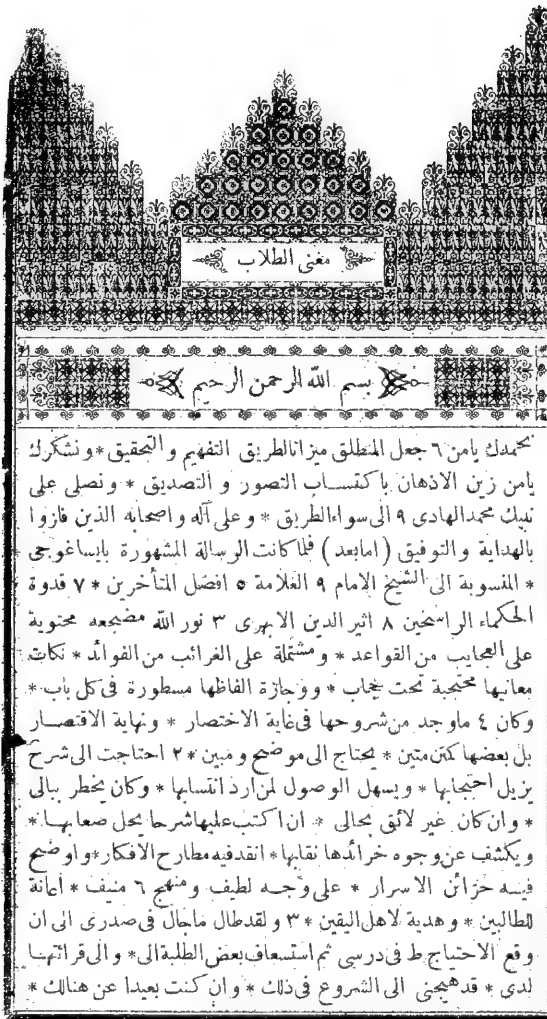 مغنى الطلاب
بسم الله الرحمن الرحيم
نحمدك يامن ٦ جعل المنطق ميزانا لطريق التفهيم والتحقيق * ونشكرك
يامن زين الاذهان باكتساب التصور و التصديق * ونصلى على
نبيك محمد الهادى ٩ الى سواء الطريق * وعلى آله واصحابه الذين فازوا
بالهداية والتوفيق ( امابعد ) فلما كانت الرسالة المشهورة بايساغوجى
* المنسوبة الى الشيخ الامام ٩ العلامة ٥ افضل المتأخرين * ٧ قدوة
الحكماء الراسخين ٨ اثير الدين الابهرى ٣ نور الله مضجعه محتوية
على العجايب من القواعد * ومشتملة على الغرائب من الفوائد * نكات
معانيها محتجبة تحت حجاب * ووجازة الفاظها مسطورة فى كل باب *
وكان ٤ ماوجد من شروحها فى غاية الاختصار * ونهاية الاقتصار
بل بعضها كمتن متين * يحتاج الى موضح ومبين * ٢ احتاجت الى شرح
يزيل احتجابها * ويسهل الوصول لمن اراد انتسابها * وكان يخطر ببالى
* وان كان غير لائق بحالى * ان اكتب عليها شرحا يحل صعابها *
ويكشف عن وجوه خرائدها نقابها * انقد فيه مطارح الافكار * واوضح
فيه خزائن الاسرار * على وجه لطيف ومنهج ٦ منيف * اعانة
للطالبين * وهدية لاهل اليقين * ٣ ولقد طال ماجال فى صدرى الى ان
وقع الاحتياج ط فى درسى ثم استسعاف بعض الطلبة الى * والى قرائتها
لدى * قد هيجنى الى الشروع فى ذلك * وان كنت بعيدا عن هنالك *